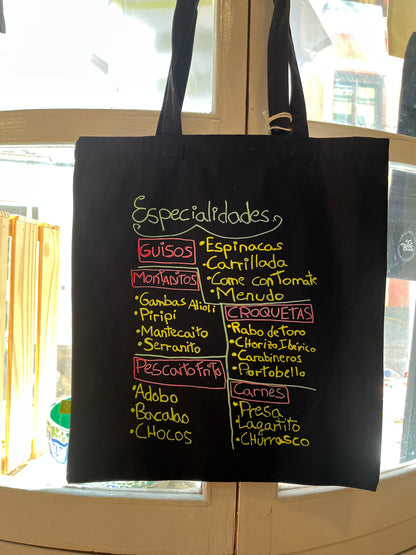 Especialidades
GUISOS
• Espinacas
• Carrillada
• Carne con Tomate
• Menudo
MONTADITOS
• Gambas Alioli
• Piripi
• Mantecaito
• Serranito
CROQUETAS
• Rabo de Toro
• Chorizo Ibérico
• Carabineros
• Portobello
Pescaito Frito
• Adobo
• Bacalao
• CHOCOS
Carnes
• Presa
• Lagartito
• CHurrasco